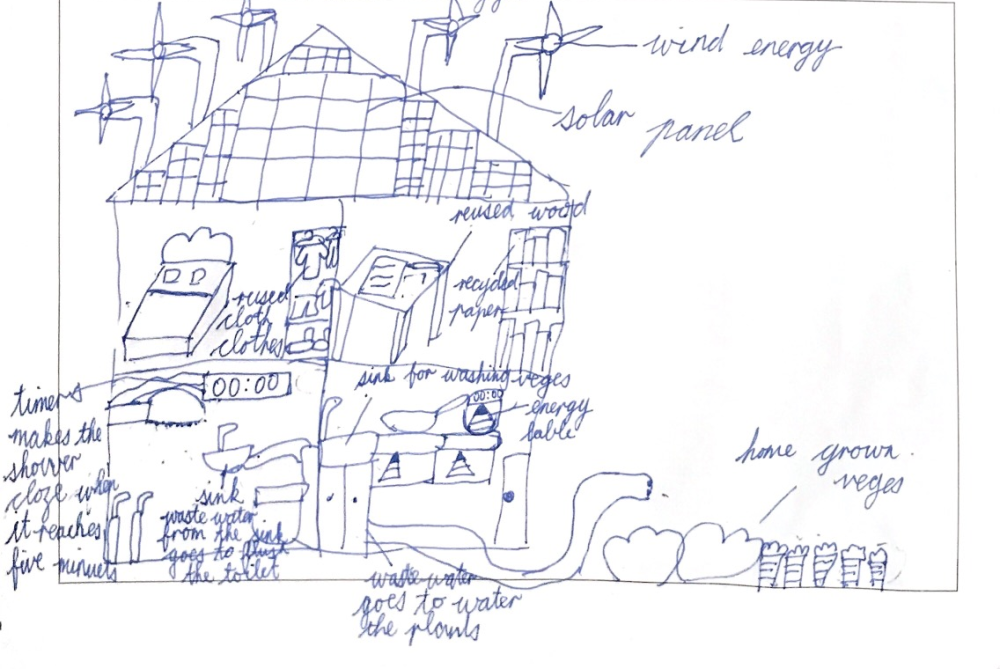 wind energy
solar panel
reused wood
reused
cloth
clothes
recycled
paper
timer
makes the
shower
cloze when
it reaches
five minuets
00:00
sink for washing veges
00:00
energy
lable
sink
waste water
from the sink
goes to flush
the toilet
home grown
veges
waste water
goes to water
the plants